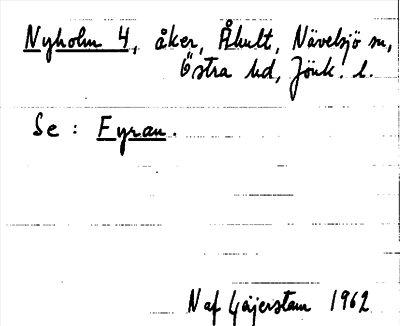 Nyholm 4, åker, Åhult, Nävelsjö sn,
Östra hd, Jönk. l.
Se : Fyran.
N af Gåjerstam 1962